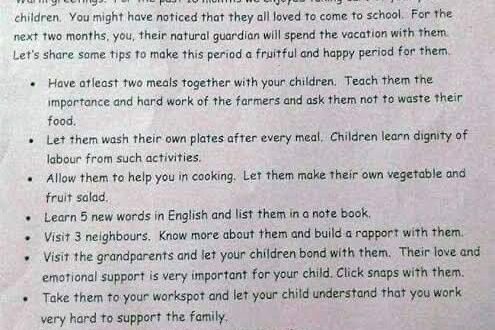 children. You might have noticed that they all loved to come to school. For the
next two months, you, their natural guardian will spend the vacation with them.
Let's share some tips to make this period a fruitful and happy period for them.
• Have atleast two meals together with your children. Teach them the
importance and hard work of the farmers and ask them not to waste their
food.
• Let them wash their own plates after every meal. Children learn dignity of
labour from such activities.
• Allow them to help you in cooking. Let them make their own vegetable and
fruit salad.
• Learn 5 new words in English and list them in a note book.
• Visit 3 neighbours. Know more about them and build a rapport with them.
• Visit the grandparents and let your children bond with them. Their love and
emotional support is very important for your child. Click snaps with them.
• Take them to your workspot and let your child understand that you work
very hard to support the family.